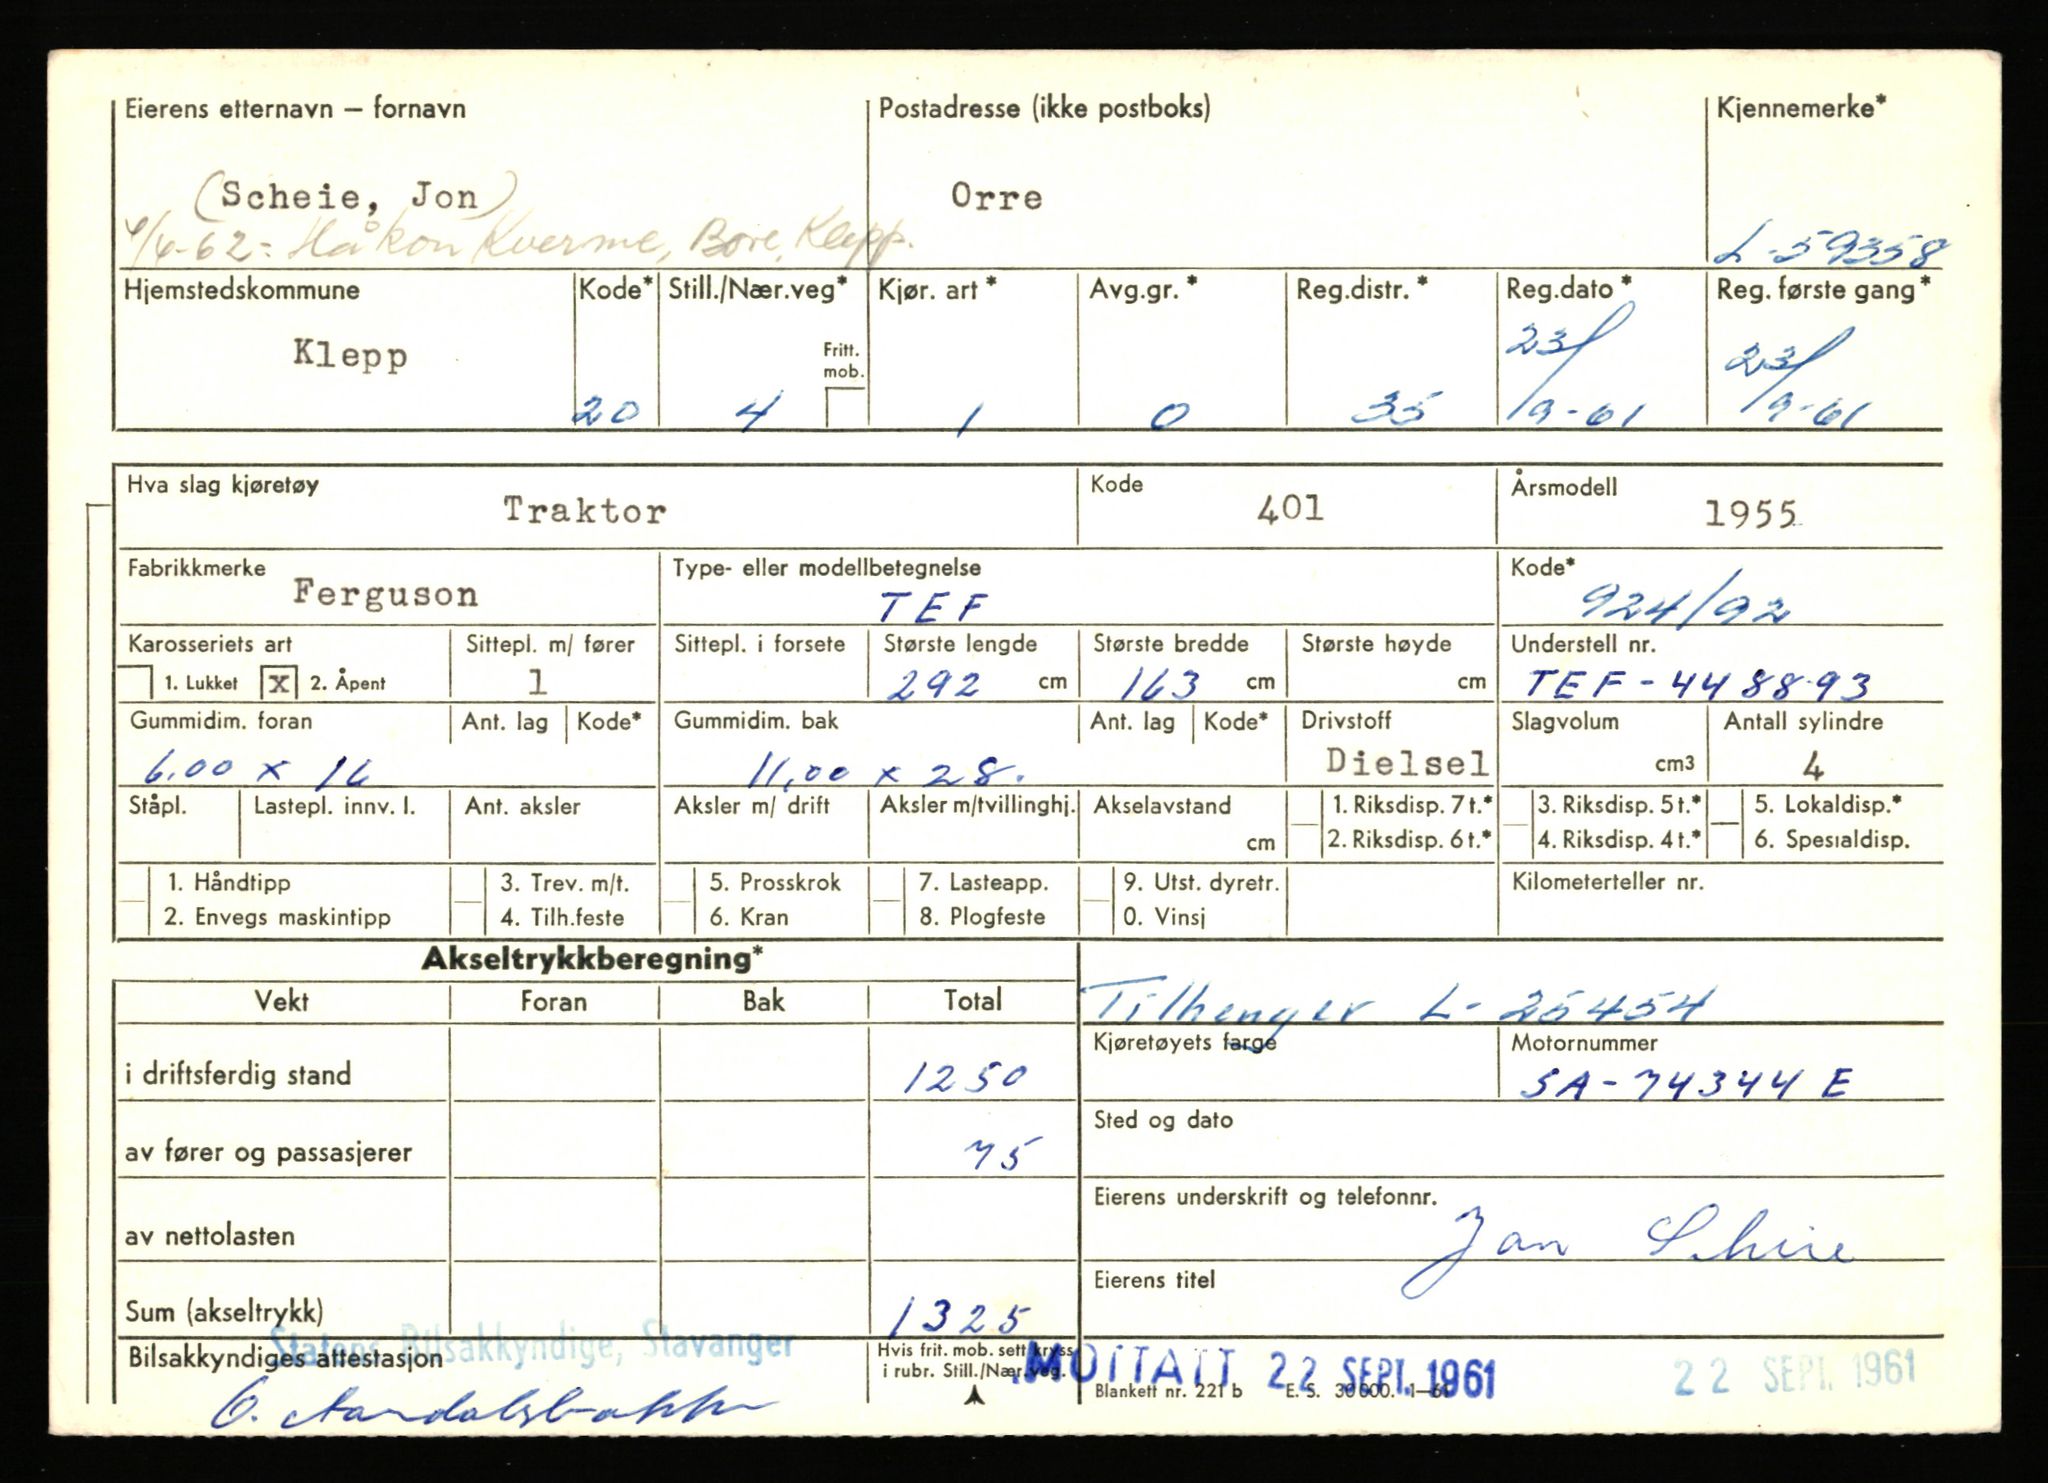 Eierens etternavn — fornavn Postadresse (ikke postboks) Kjennemerke*
(Scheie, Jon) Orre
4/4-62 = Håkon Kverme, Bore, Klepp. L-59358
Hjemstedskommune Kode* Still./Nær.veg* Kjør. art * Avg.gr. * Reg.distr. * Reg.dato * Reg. første gang *
Klepp Fritt. mob. 23/ 23/
20 4 1 0 35 /9-61 /9-61
Hva slag kjøretøy Traktor Kode 401 Årsmodell 1955
Fabrikkmerke Ferguson Type- eller modellbetegnelse TEF Kode* 924/92
Karosseriets art Sittepl. m/ fører Sittepl. i forsete Største lengde Største bredde Største høyde Understell nr.
1. Lukket X 2. Åpent 1 292 cm 163 cm cm TEF-448893
Gummidim. foran Ant. lag Kode* Gummidim. bak Ant. lag Kode* Drivstoff Slagvolum Antall sylindre
6.00 x 16 11,00 x 28. Dielsel cm3 4
Ståpl. Lastepl. innv. l. Ant. aksler Aksler m/ drift Aksler m/tvillinghj. Akselavstand 1. Riksdisp. 7 t.* 3. Riksdisp. 5 t.* 5. Lokaldisp.*
cm 2. Riksdisp. 6 t.* 4. Riksdisp. 4 t.* 6. Spesialdisp.
1. Håndtipp 3. Trev. m/t. 5. Prosskrok 7. Lasteapp. 9. Utst. dyretr. Kilometerteller nr.
2. Envegs maskintipp 4. Tilh.feste 6. Kran 8. Plogfeste 0. Vinsj
Akseltrykkberegning*
Vekt Foran Bak Total Tilhenger L-25454
Kjøretøyets farge Motornummer
i driftsferdig stand 1250 SA-74344 E
Sted og dato
av fører og passasjerer 75
Eierens underskrift og telefonnr.
av nettolasten Jon Scheie
Eierens titel
Sum (akseltrykk) 1325
Statens Bilsakkyndige, Stavanger
Bilsakkyndiges attestasjon Hvis frit. mob. sett kryss
i rubr. Still./Nær.veg. MOTTATT 22 SEPT. 1961 22 SEPT. 1961
Blankett nr. 221 b E. S. 30 000. 1—61